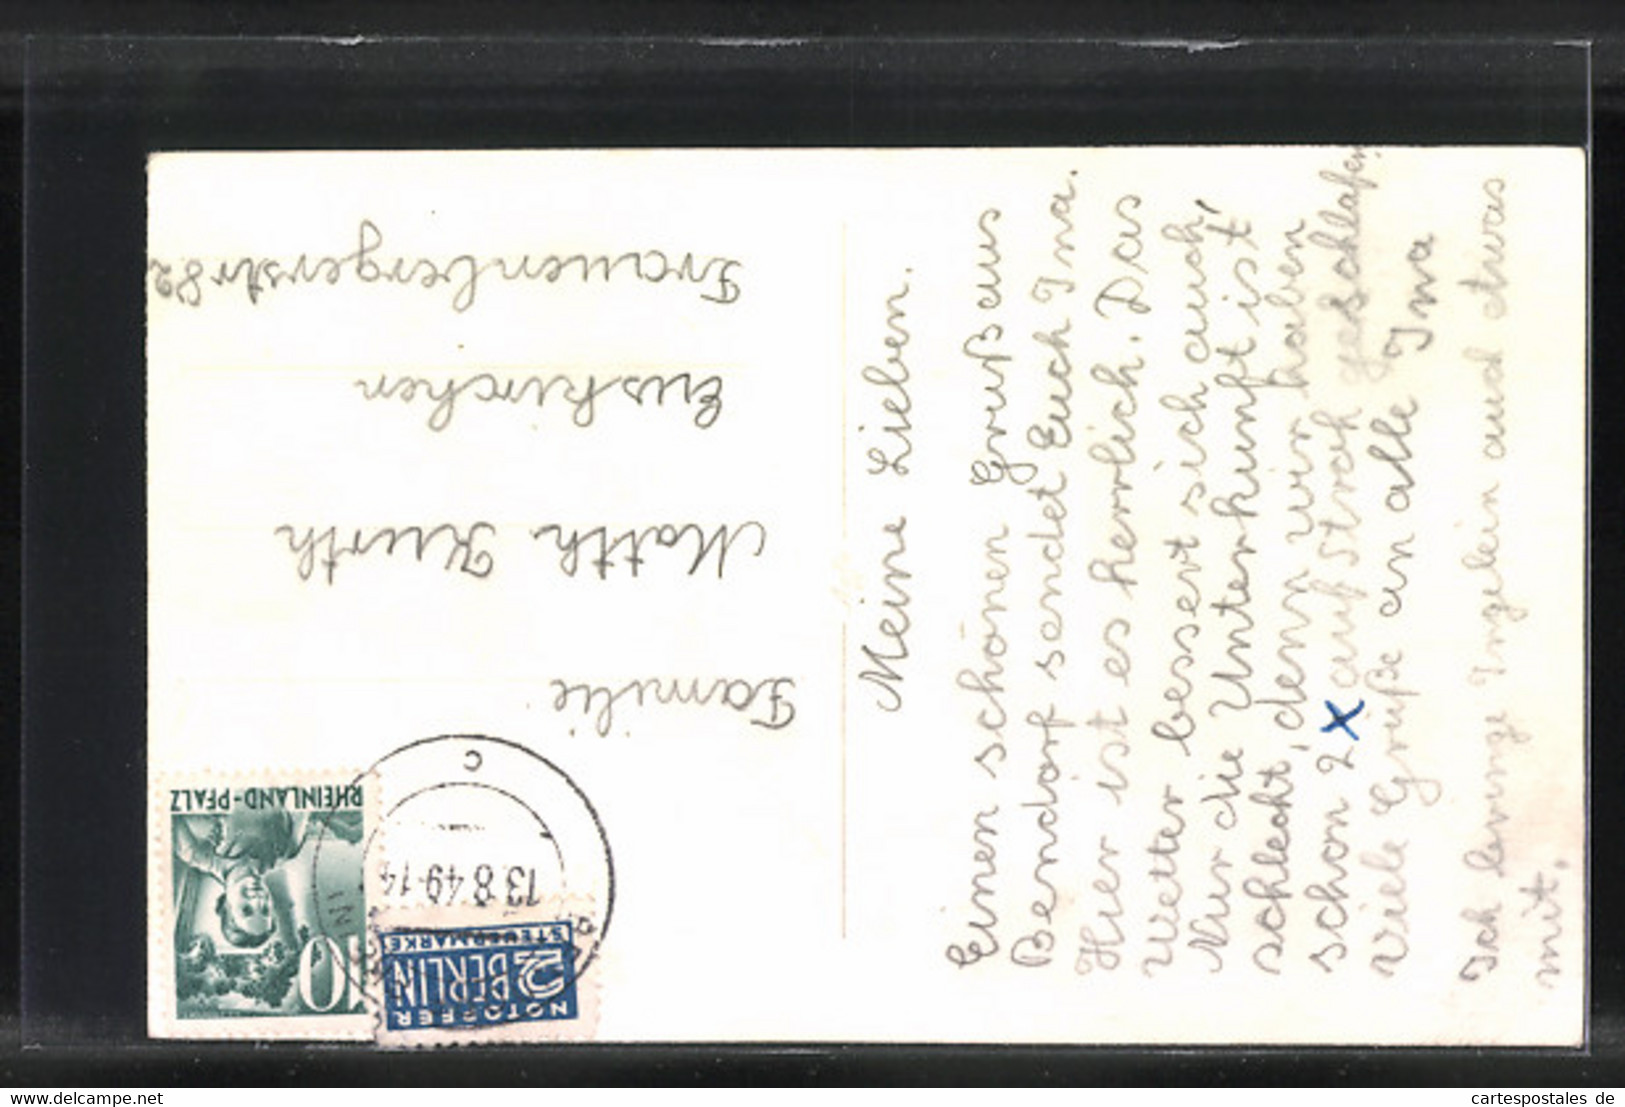 Meine Lieben.
Einen schönen Gruß aus
Bendorf sendet Euch Ina.
Hier ist es herrlich. Das
Wetter bessert sich auch,
Nur die Unterkunft ist
schlecht, denn wir haben
schon 2 x auf Stroh geschlafen.
Viele Grüße an alle Ina
Ich bringe Ingelein auch etwas
mit.
Familie
Matth Kurth
Euskirchen
Frauenbergerstr 82
RHEINLAND-PFALZ
10
C
13.8.49-14
NOTOPFER
2 BERLIN
STEUERMARKE
www.delcampe.net
cartespostales de